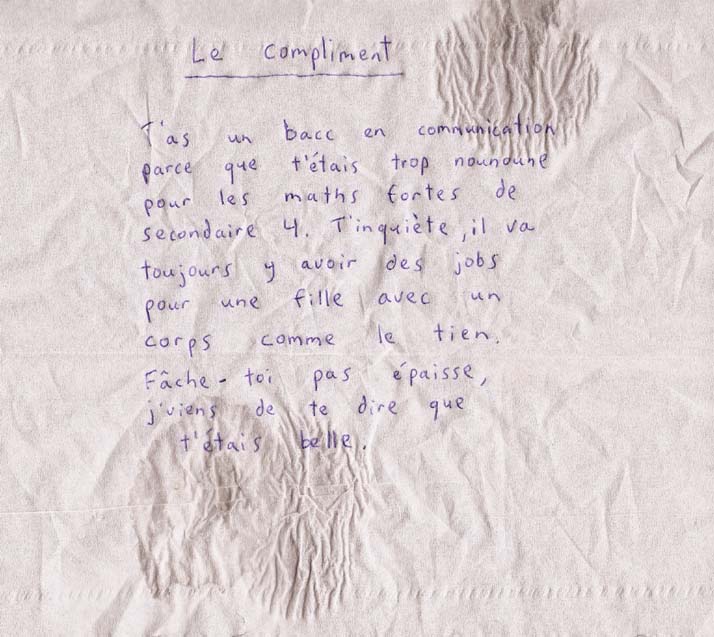 Le compliment
T'as un bacc en communication
parce que t'étais trop nounoune
pour les maths fortes de
secondaire 4. T'inquiète, il va
toujours y avoir des jobs
pour une fille avec un
corps comme le tien.
Fâche-toi pas épaisse,
j'viens de te dire que
t'étais belle.